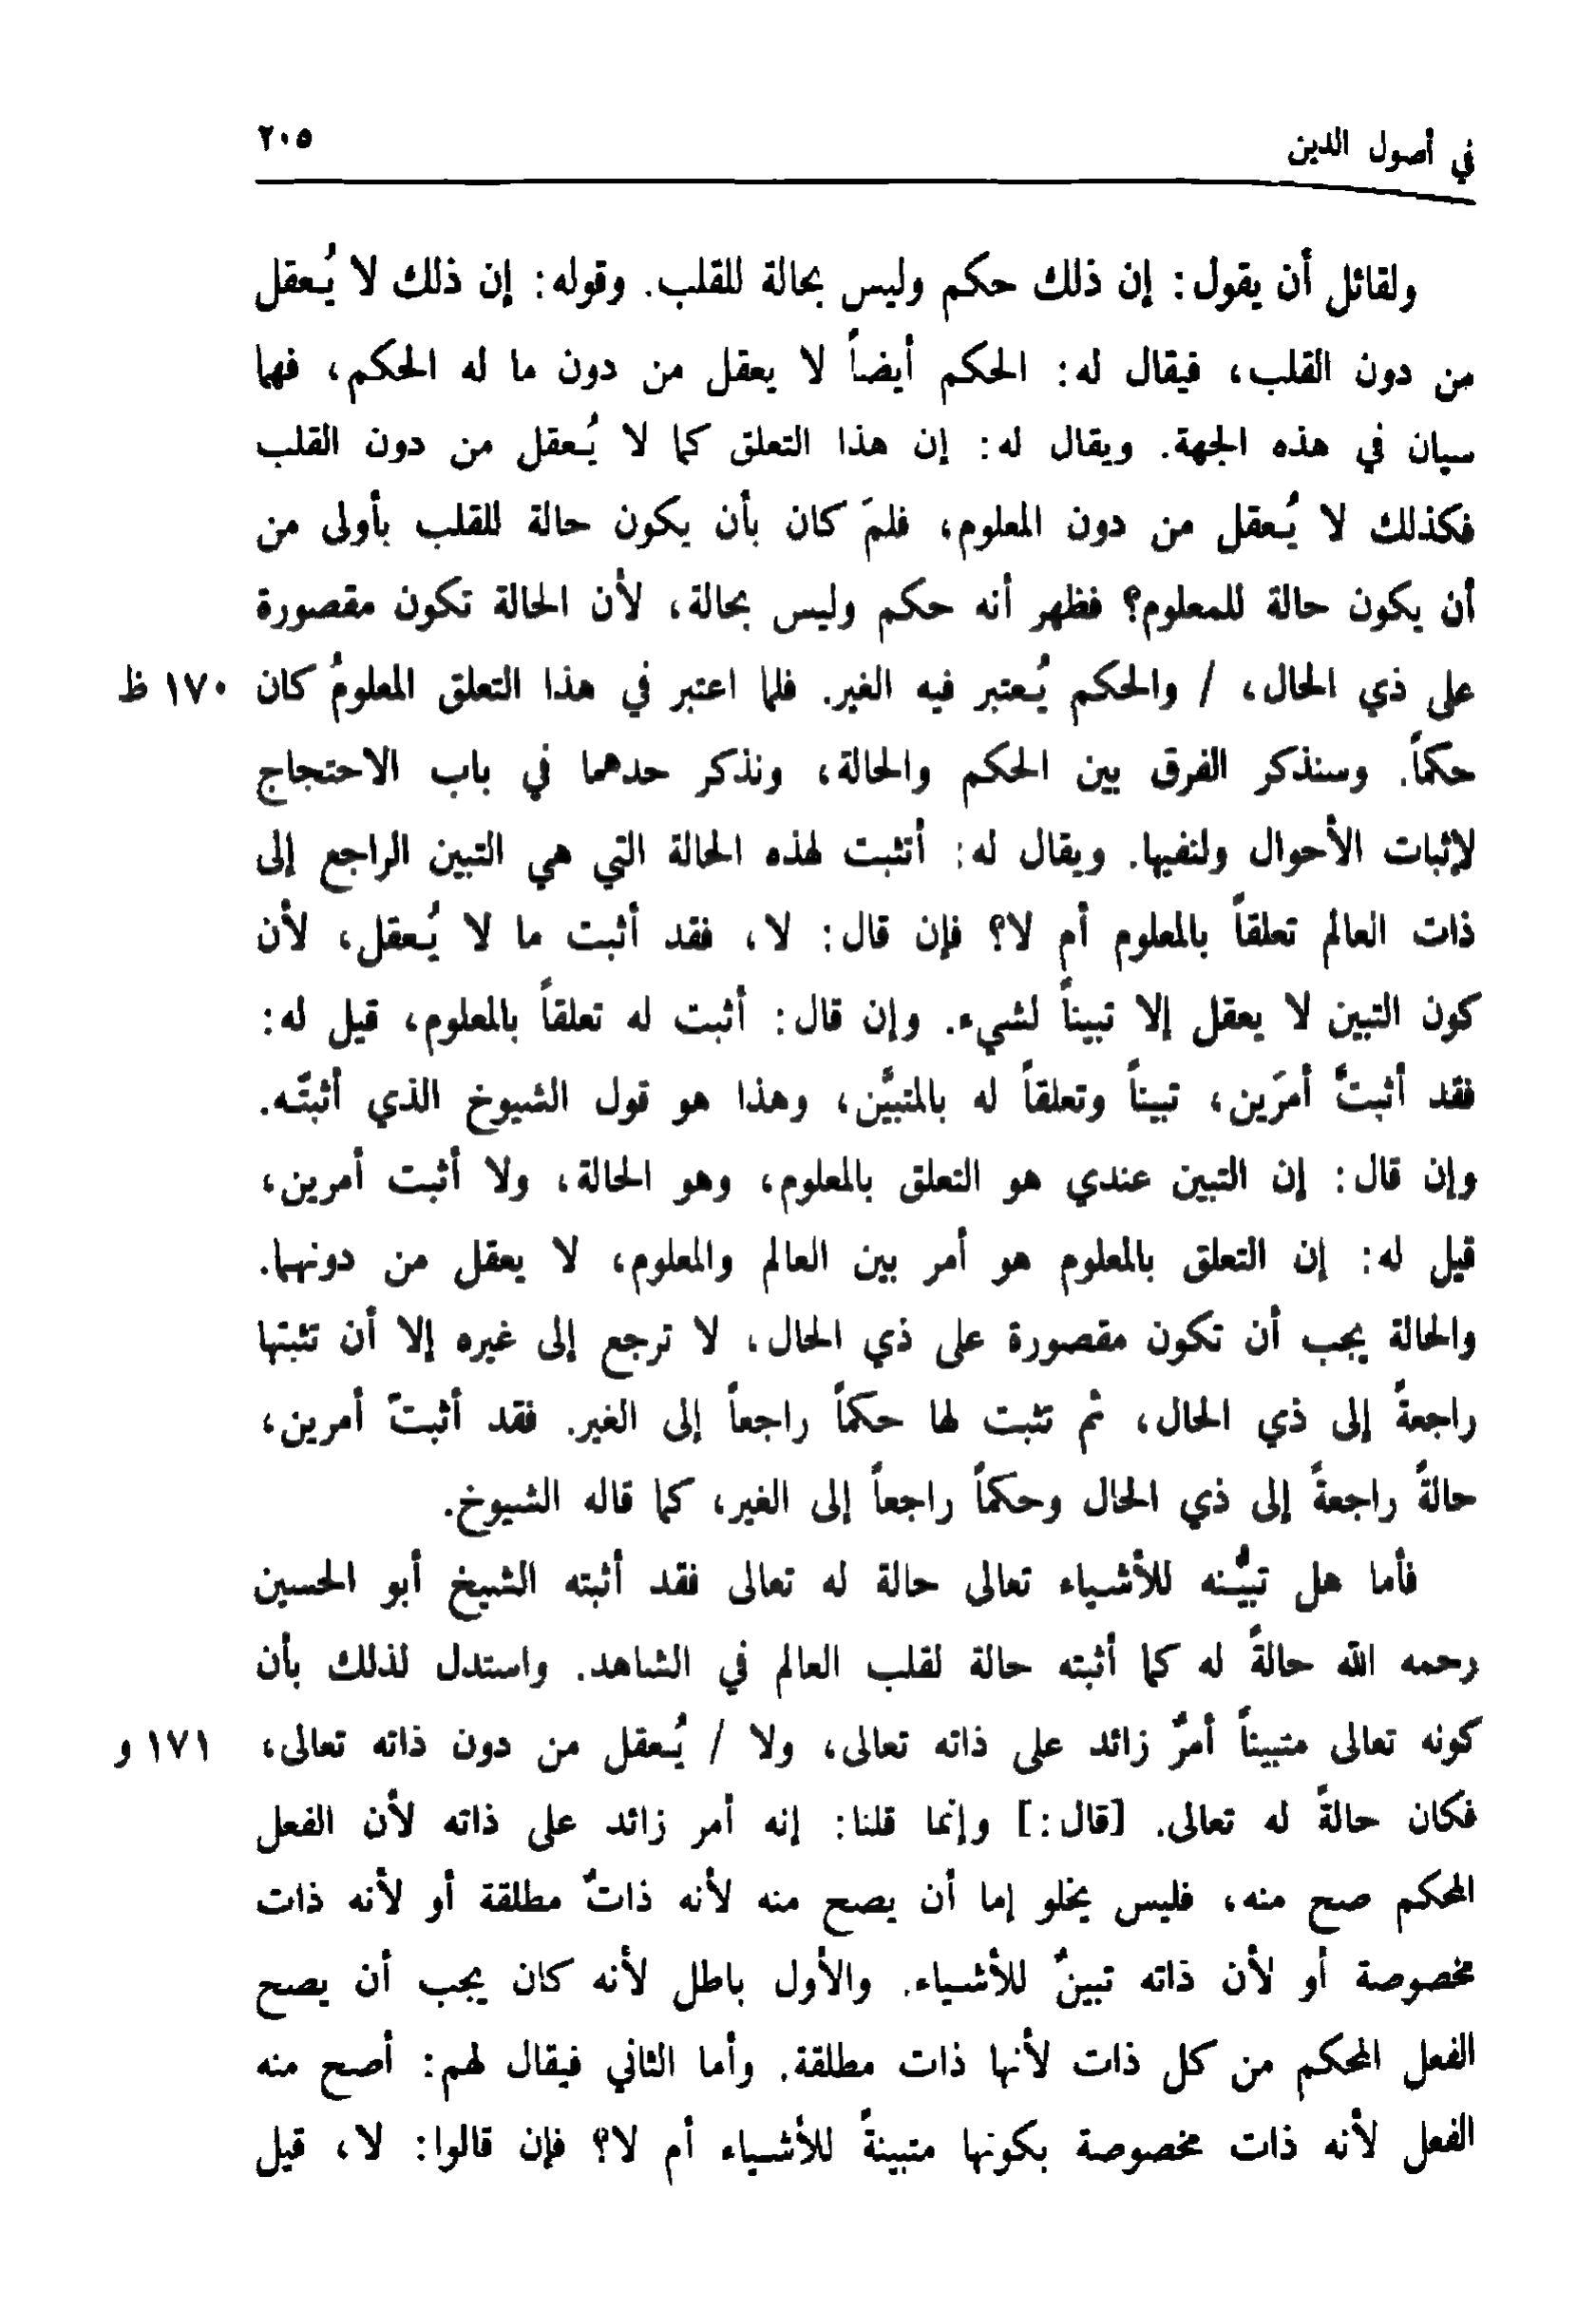 في أصول الدين ٢٠٥
ولقائل أن يقول: إن ذلك حكم وليس بحالة للقلب. وقوله: إن ذلك لا يُعقل
من دون القلب، فيقال له: الحكم أيضاً لا يعقل من دون ما له الحكم، فهما
سيان في هذه الجهة. ويقال له: إن هذا التعلق كما لا يُعقل من دون القلب
فكذلك لا يُعقل من دون المعلوم، فلمَ كان بأن يكون حالة للقلب بأولى من
أن يكون حالة للمعلوم؟ فظهر أنه حكم وليس بحالة، لأن الحالة تكون مقصورة
على ذي الحال، / والحكم يُعتبر فيه الغير. فلما اعتبر في هذا التعلق المعلومُ كان ١٧٠ ظ
حكماً. وسنذكر الفرق بين الحكم والحالة، ونذكر حدهما في باب الاحتجاج
لإثبات الأحوال ولنفيها. ويقال له: أتثبت لهذه الحالة التي هي التبين الراجع إلى
ذات العالم تعلقاً بالمعلوم أم لا؟ فإن قال: لا، فقد أثبت ما لا يُعقل، لأن
كون التبين لا يعقل إلا تبيناً لشيء. وإن قال: أثبت له تعلقاً بالمعلوم، قيل له:
فقد أثبتَّ أمرَين، تبيناً وتعلقاً له بالمتبيَّن، وهذا هو قول الشيوخ الذي أثبتّه.
وإن قال: إن التبين عندي هو التعلق بالمعلوم، وهو الحالة، ولا أثبت أمرين،
قيل له: إن التعلق بالمعلوم هو أمر بين العالم والمعلوم، لا يعقل من دونهما.
والحالة يجب أن تكون مقصورة على ذي الحال، لا ترجع إلى غيره إلا أن تثبتها
راجعةً إلى ذي الحال، ثم تثبت لها حكماً راجعاً إلى الغير. فقد أثبتَ أمرين،
حالةً راجعةً إلى ذي الحال وحكماً راجعاً إلى الغير، كما قاله الشيوخ.
فأما هل تبيُّنه للأشياء تعالى حالة له تعالى فقد أثبته الشيخ أبو الحسين
رحمه الله حالةً له كما أثبته حالة لقلب العالم في الشاهد. واستدل لذلك بأن
كونه تعالى متبيناً أمرٌ زائد على ذاته تعالى، ولا / يُعقل من دون ذاته تعالى، ١٧١ و
فكان حالةً له تعالى. [قال:] وإنما قلنا: إنه أمر زائد على ذاته لأن الفعل
المحكم صح منه، فليس يخلو إما أن يصح منه لأنه ذاتٌ مطلقة أو لأنه ذات
مخصوصة أو لأن ذاته تبينٌ للأشياء. والأول باطل لأنه كان يجب أن يصح
الفعل المحكم من كل ذات لأنها ذات مطلقة. وأما الثاني فيقال لهم: أصح منه
الفعل لأنه ذات مخصوصة بكونها متبينةً للأشياء أم لا؟ فإن قالوا: لا، قيل